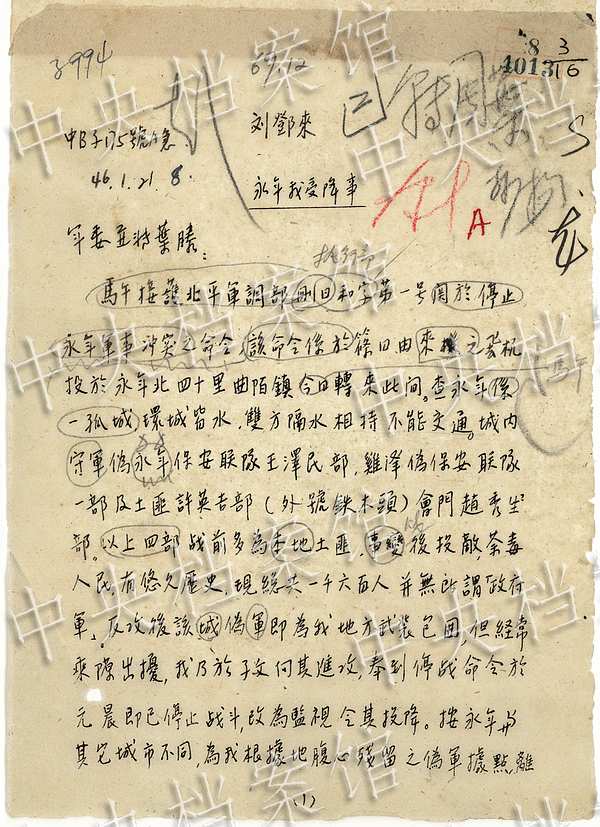 子994
8 3
4013 16
刘鄧來
中日子175號急
46.1.21.8.
永年我受降事
A
軍委並轉葉滕：
执行部
馬午接護北平軍調部删日和字第一号関於停止
永年軍事冲突之命令，該命令係於篠日由來機之裝机
馬午
投於永年北四十里曲陌鎮今日轉來此间。查永年係
一孤城，環城皆水，雙方隔水相持不能交通。城内
守軍偽永年保安联隊王澤民部，雞澤偽保安联隊
一部及土匪許英吉部（外號鉄木頭）會門趙秀生
部。以上四部战前多為本地土匪，事變後投敵，荼毒
人民，有悠久歷史，現總共一千六百人并無所謂「政府
軍」。反攻後該城偽軍即為我地方武裝包囲，但經常
乘隙出擾，我乃於子文向其進攻，奉到停战命令於
元晨即已停止战斗，改為監視令其投降。按永年與
其它城市不同，為我根據地腹心殘留之偽軍據點，離
(1)
中央档案馆